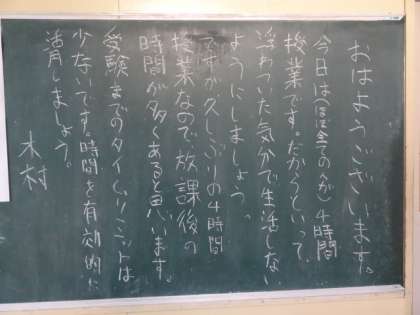 おはようございます。
今日は(ほぼ全ての人が)4時間
授業です。だからといって、
浮わついた気分で生活しない
ようにしましょう。
ですが久しぶりの4時間
授業なので、放課後の
時間が多くあると思います。
受験までのタイムリミットは
少ないです。時間を有効的に
活用しましょう。
木村